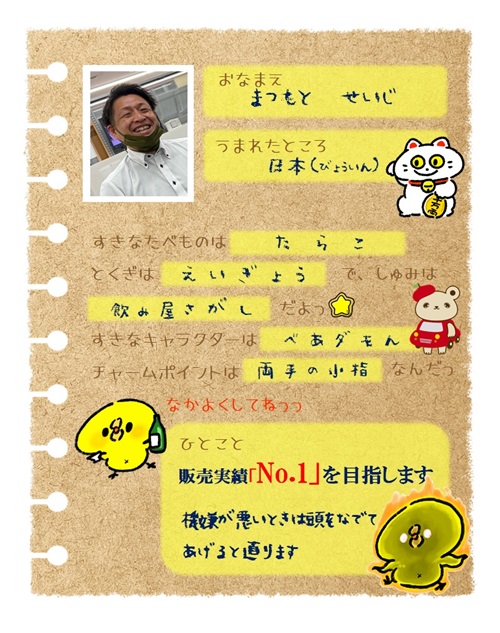 おなまえ
まつもと せいじ
うまれたところ
日本(びょういん)
すきなたべものは たらこ
とくぎは えいぎょう で、しゅみは
飲み屋さがし だよっ
すきなキャラクターは べあダモん
チャームポイントは 両手の小指 なんだっ
なかよくしてねっっ
ひとこと
販売実績「No.1」を目指します
機嫌が悪いときは頭をなでて
あげると直ります